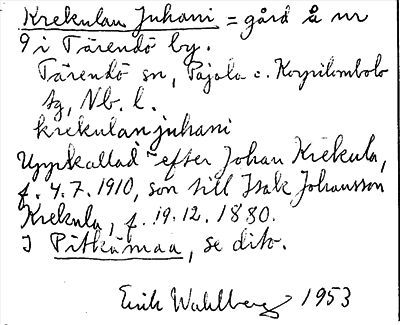 Krekulan Juhani = gård å nr
9 i Tärendö by.
Tärendö sn, Pajala o. Korpilombolo
tg, Nb. l.
krekulanjuhani
Uppkallad efter Johan Krekula,
f. 4.7.1910, son till Isak Johansson
Krekula, f. 19.12.1880.
I Pitkämaa, se dito.
Erik Wahlberg 1953